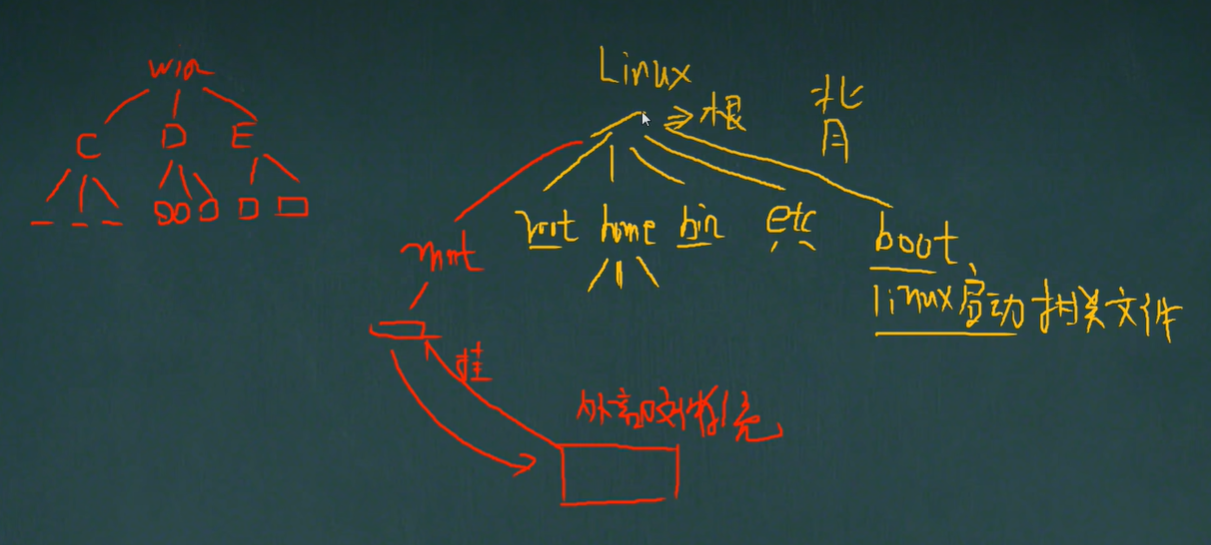 win
C D E
Linux
根
背
mnt
root home bin etc
boot
linux启动相关文件
挂
外部文件系统